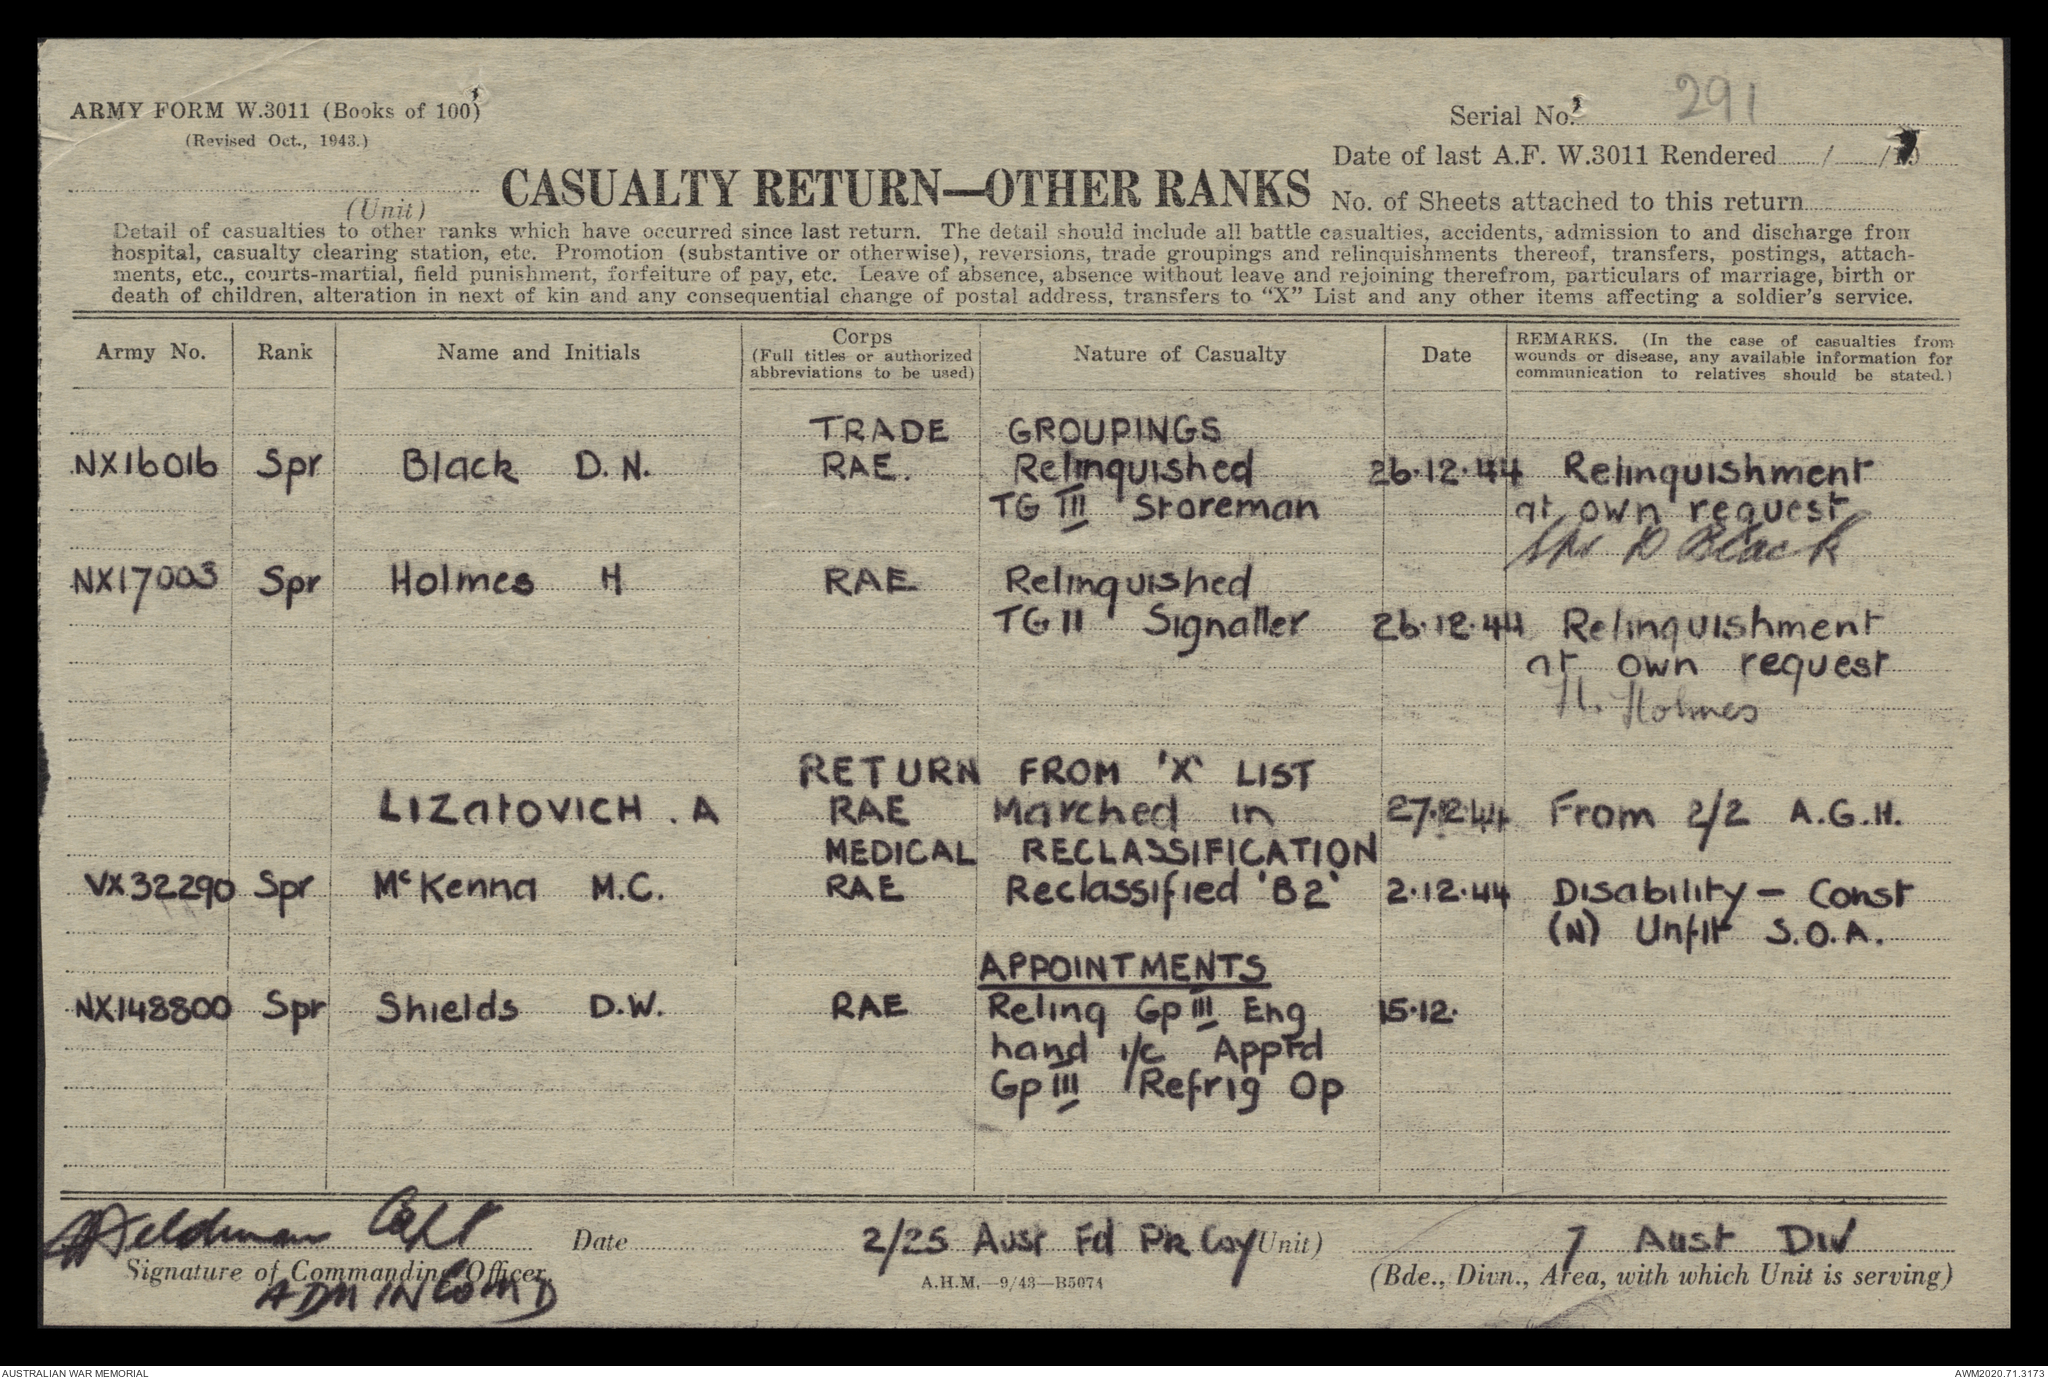 ARMY FORM W.3011 (Books of 100)
(Revised Oct., 1943.)
Serial No. 291
Date of last A.F. W.3011 Rendered / /19
(Unit)
CASUALTY RETURN—OTHER RANKS
No. of Sheets attached to this return
Detail of casualties to other ranks which have occurred since last return. The detail should include all battle casualties, accidents, admission to and discharge from
hospital, casualty clearing station, etc. Promotion (substantive or otherwise), reversions, trade groupings and relinquishments thereof, transfers, postings, attach-
ments, etc., courts-martial, field punishment, forfeiture of pay, etc. Leave of absence, absence without leave and rejoining therefrom, particulars of marriage, birth or
death of children, alteration in next of kin and any consequential change of postal address, transfers to "X" List and any other items affecting a soldier's service.
Army No. Rank Name and Initials Corps (Full titles or authorized abbreviations to be used) Nature of Casualty Date REMARKS. (In the case of casualties from wounds or disease, any available information for communication to relatives should be stated.)
TRADE GROUPINGS
NX16016 Spr Black D.N. RAE. Relinquished 26.12.44 Relinquishment
TG III Storeman at own request
Spr D Black
NX17003 Spr Holmes H RAE Relinquished
TG II Signaller 26.12.44 Relinquishment
at own request
H. Holmes
RETURN FROM 'X' LIST
LIZATOVICH . A RAE Marched in 27.12.44 From 2/2 A.G.H.
MEDICAL RECLASSIFICATION
VX32290 Spr McKenna M.C. RAE Reclassified 'B2' 2.12.44 Disability - Const
(N) Unfit S.O.A.
APPOINTMENTS
NX148800 Spr Shields D.W. RAE Relinq Gp III Eng 15.12.
hand i/c Apptd
Gp III Refrig Op
Feldman Capt Date 2/25 Aust Fd Pk Coy (Unit) 7 Aust Div
Signature of Commanding Officer. A.H.M.—9/43—B5074 (Bde., Divn., Area, with which Unit is serving)
ADMIN COMD
AUSTRALIAN WAR MEMORIAL AWM2020.71.3173